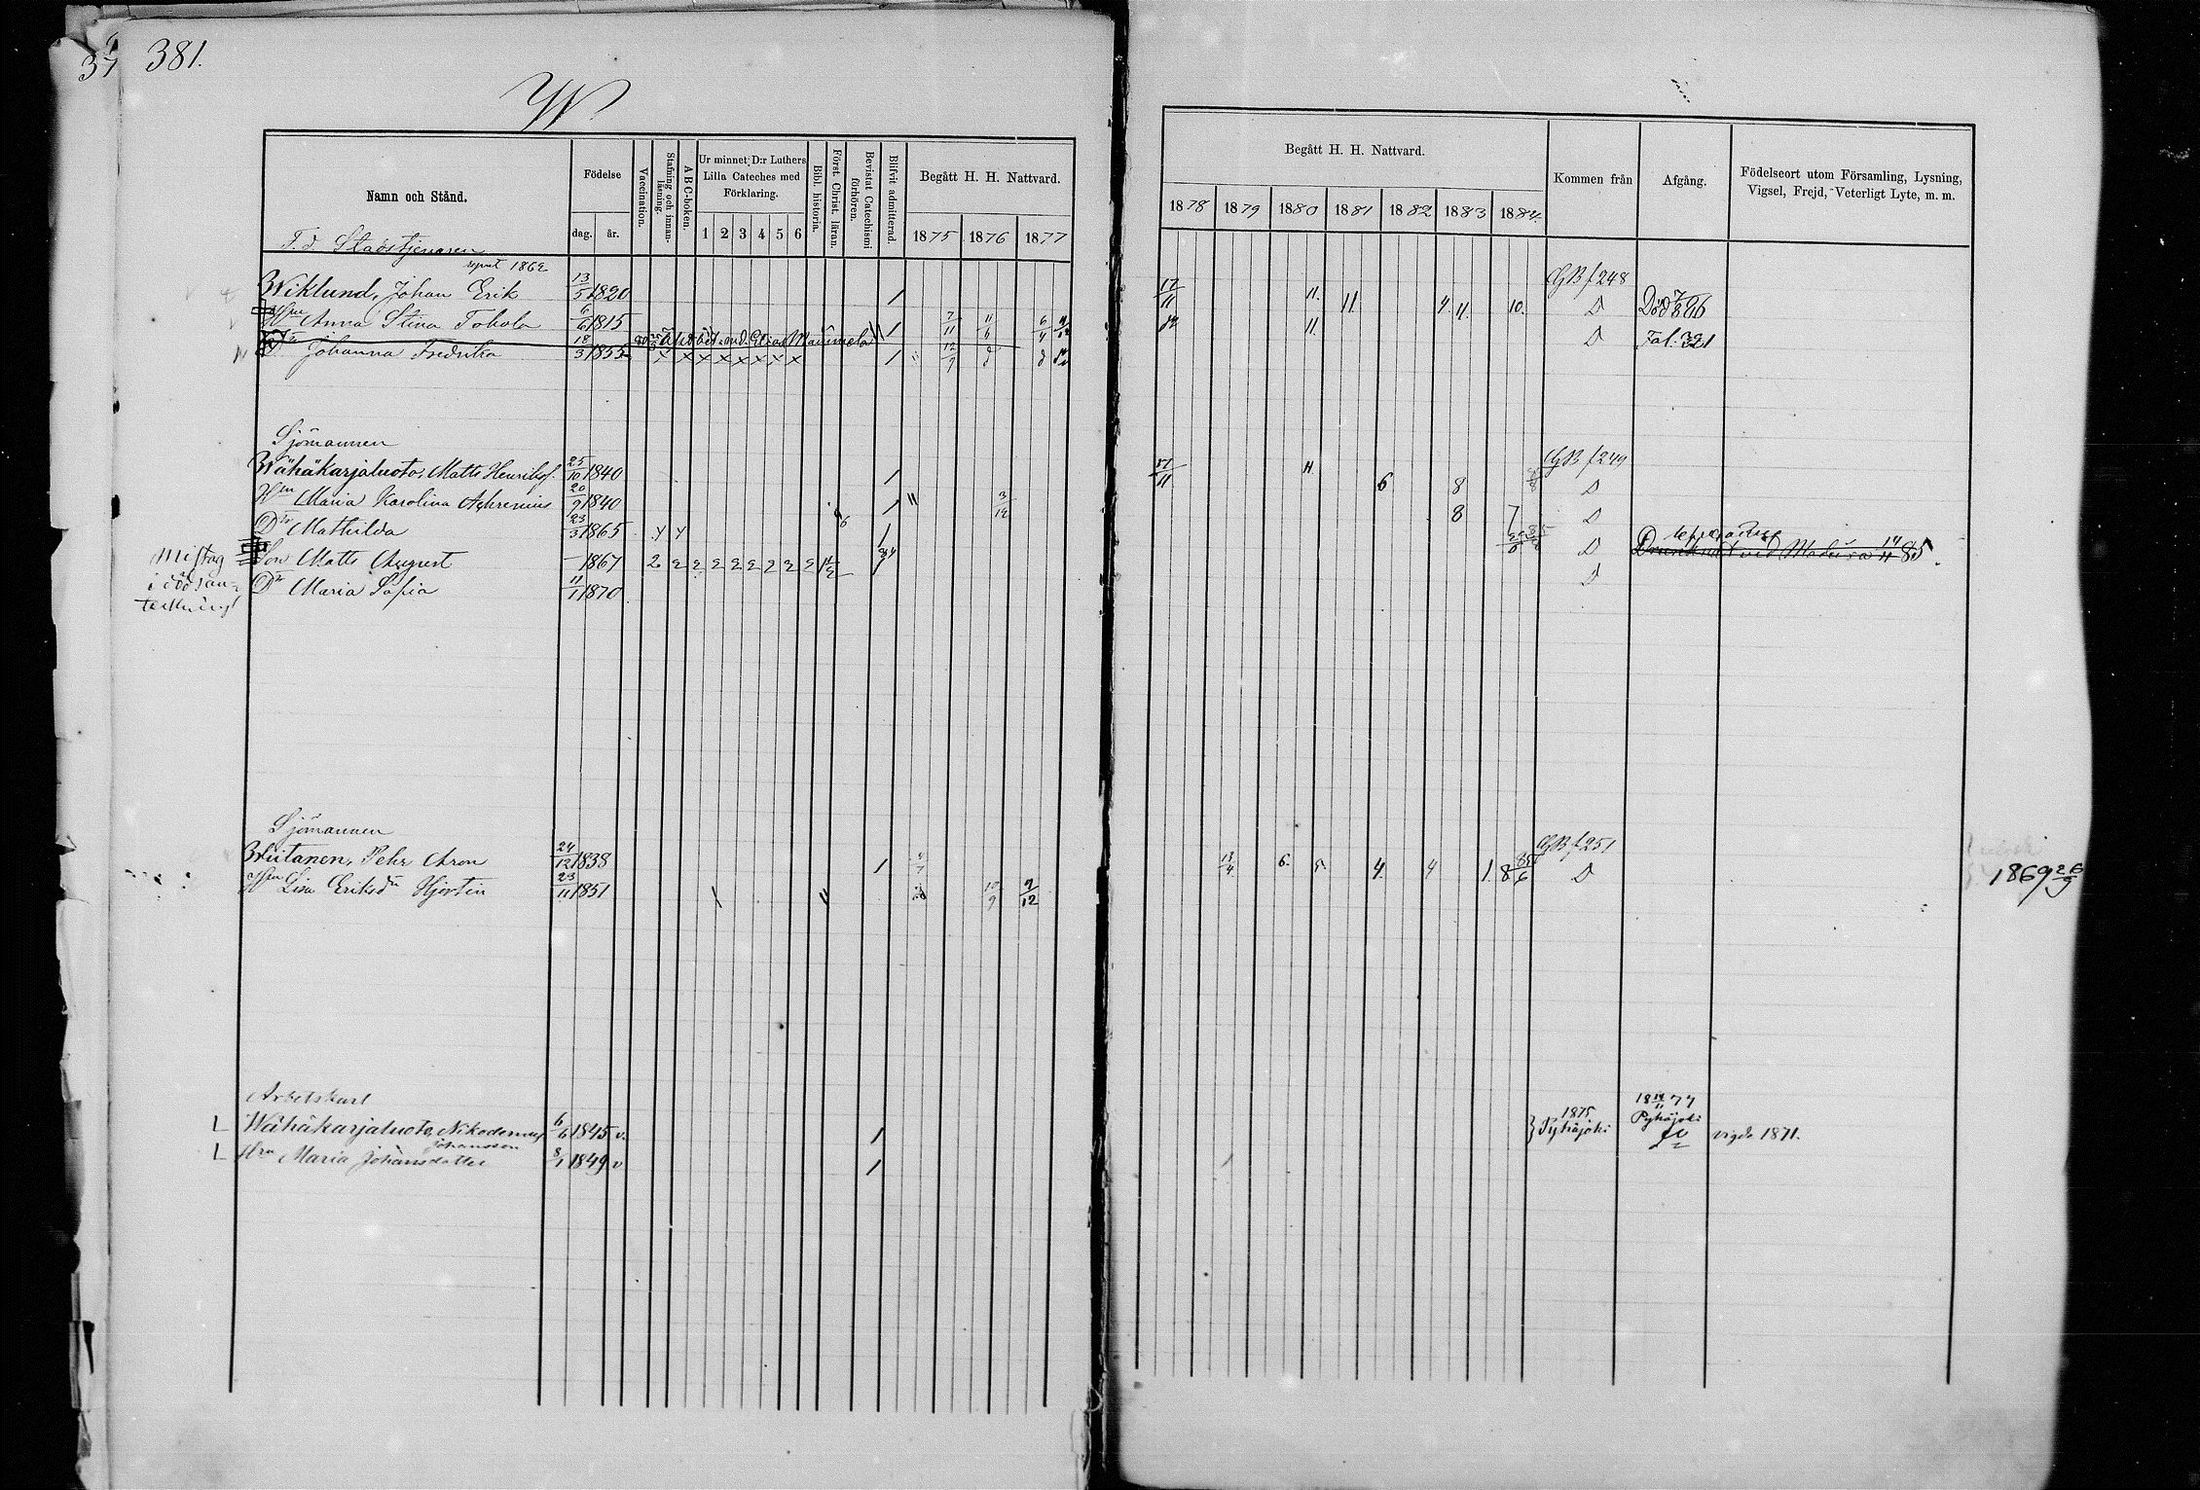 381.
W
Namn och Stånd.
Födelse
dag. år.
Vaccination.
Stafning och innan-läsning.
A B C-boken.
Ur minnet D:r Luthers Lilla Cateches med Förklaring.
1 2 3 4 5 6
Bibl. historia.
Först. Christ. läran.
Bevistat Catechismi förhören.
Blifvit admitterad.
Begått H. H. Nattvard.
1875 1876 1877
Begått H. H. Nattvard.
1878 1879 1880 1881 1882 1883 1884.
Kommen från
Afgång.
Födelseort utom Församling, Lysning, Vigsel, Frejd, Veterligt Lyte, m. m.
F. d. Stadstjenaren
1862
Wiklund, Johan Erik 13/5 1820 / 17/11 11. 11 4. 11. 10. GB f 248
Hu Anna Stina Tohola 6/6 1815 / 7/11 11/6 6/4 11. D Död 7/8 86
Dr Johanna Fredrika 18/3 1855 x x x x x x x x / 12/9 D Fol. 321
Sjömannen
Wähäkarjaluoto, Matts Henriksf. 25/10 1840 / 17/11 11. 6 8 GB f 249 D
Hn Maria Karolina Achrenius 20/9 1840 / 3/12 8 7 D
Dr Mathilda 23/3 1865 / D
Son Matts August 1867 2 2 2 2 2 2 2 2 2 D Drunknat vid Madeira 14/4 85.
Dr Maria Sofia 11/1 1870
misstag
i dödsan-
teckning!
Sjömannen
Wiitanen, Pehr Aron 24/12 1838 / 13/4 6. 5. 4. 4 1. 8 GB f 251
Hn Lisa Eriksdr Hjertin 23/11 1851 10/9 9/12 D 1869 26/9
Arbetskarl
Wähäkarjaluoto, Nikodemus Johansson 6/6 1845 v. / 1875 Pyhäjoki 18 14/11 77 Pyhäjoki vigde 1871.
Hru Maria Johansdotter 8/1 1849 v /